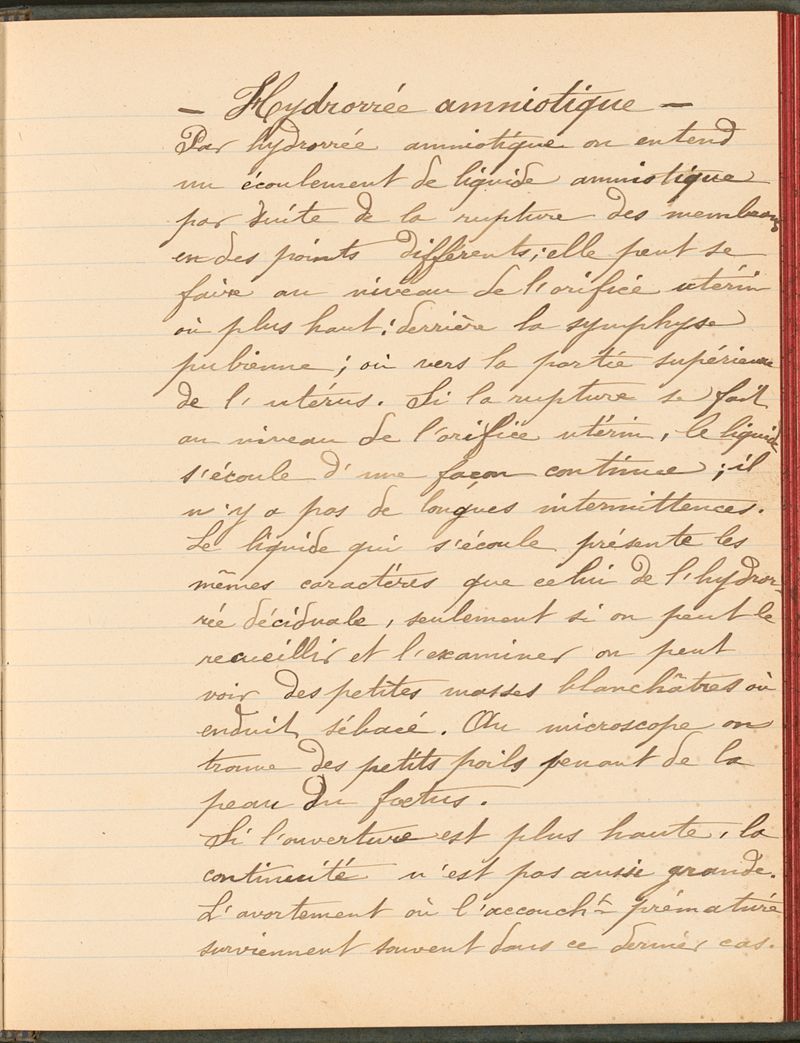 — Hydrorrée amniotique —
Par hydrorrée amniotique on entend
un écoulement de liquide amniotique
par suite de la rupture des membranes
en des points différents ; elle peut se
faire au niveau de l'orifice utérin
où plus haut : derrière la symphyse
pubienne ; où vers la partie supérieure
de l'utérus. Si la rupture se fait
au niveau de l'orifice utérin, le liquide
s'écoule d'une façon continue ; il
n'y a pas de longues intermittences.
Le liquide qui s'écoule présente les
mêmes caractères que celui de l'hydror-
rée déciduale, seulement si on peut le
recueillir et l'examiner on peut
voir des petites masses blanchâtres où
enduit sébacé. Au microscope on
trouve des petits poils venant de la
peau du fœtus.
Si l'ouverture est plus haute, la
continuité n'est pas aussi grande.
L'avortement où l'accoucht prématuré
surviennent souvent dans ce dernier cas.